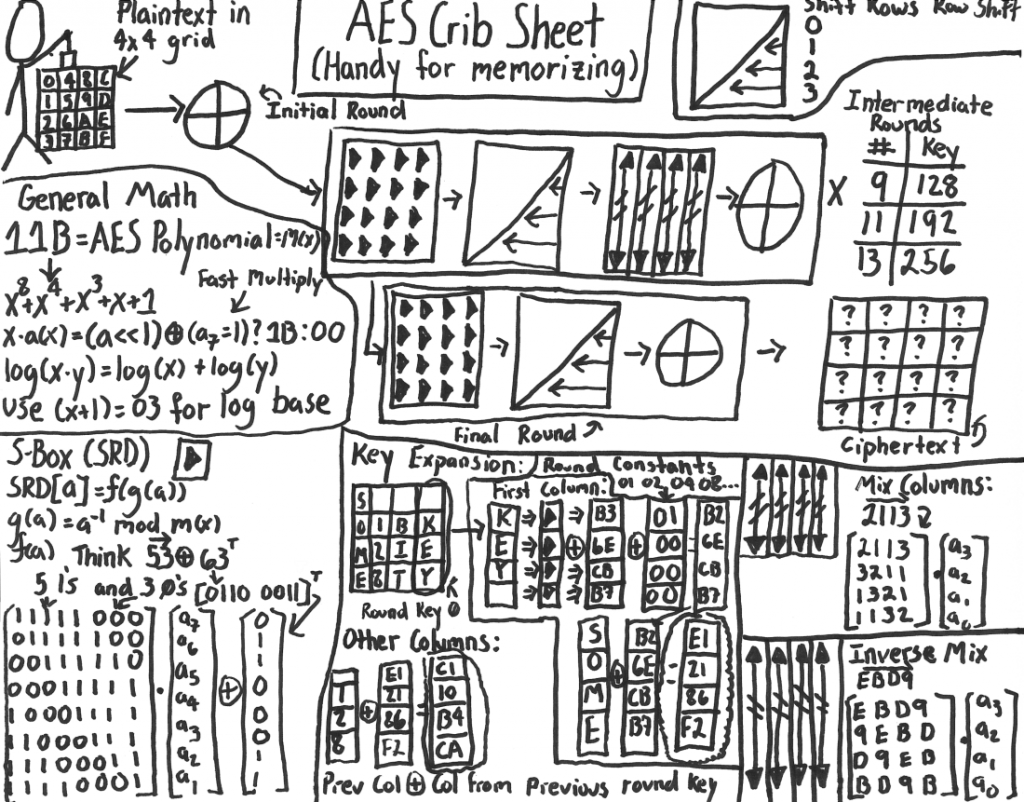 Plaintext in
4x4 grid
0 4 8 C
1 5 9 D
2 6 A E
3 7 B F
AES Crib Sheet
(Handy for memorizing)
Shift Rows Row Shift
0
1
2
3
Initial Round
Intermediate
Rounds
# Key
9 128
11 192
13 256
X
General Math
11B=AES Polynomial=M(x)
Fast Multiply
x⁸+x⁴+x³+x+1
x·a(x)=(a<<1)⊕(a₇=1)?1B:00
log(x·y)=log(x)+log(y)
Use (x+1)=03 for log base
? ? ? ?
? ? ? ?
? ? ? ?
? ? ? ?
Final Round
Ciphertext
S-Box (SRD)
SRD[a]=f(g(a))
g(a)=a⁻¹ mod m(x)
f(a) Think 53⊕63ᵀ
5 1's and 3 0's [0110 0011]ᵀ
1 1 1 1 1 0 0 0 a₇ 0
0 1 1 1 1 1 0 0 a₆ 1
0 0 1 1 1 1 1 0 a₅ 1
0 0 0 1 1 1 1 1 · a₄ ⊕ 0
1 0 0 0 1 1 1 1 a₃ 0
1 1 0 0 0 1 1 1 a₂ 0
1 1 1 0 0 0 1 1 a₂ 1
1 1 1 1 0 0 0 1 a₁ 1
Key Expansion:
Round Constants
First Column: 01 02 04 08...
S
O 1 B K
M 2 I E
E 8 T Y
Round Key 0
K B3 01 B2
E ⊕ 6E ⊕ 00 = 6E
Y CB 00 CB
B7 00 B7
S B2 E1
O ⊕ 6E = 21
M CB 86
E B7 F2
Other Columns:
E1 C1
1 21 10
2 ⊕ 86 = B4
8 F2 CA
Prev Col ⊕ Col from Previous round key
Mix Columns:
2113
2 1 1 3 a₃
3 2 1 1 · a₂
1 3 2 1 a₁
1 1 3 2 a₀
Inverse Mix
EBD9
E B D 9 a₃
9 E B D · a₂
D 9 E B a₁
B D 9 B a₀